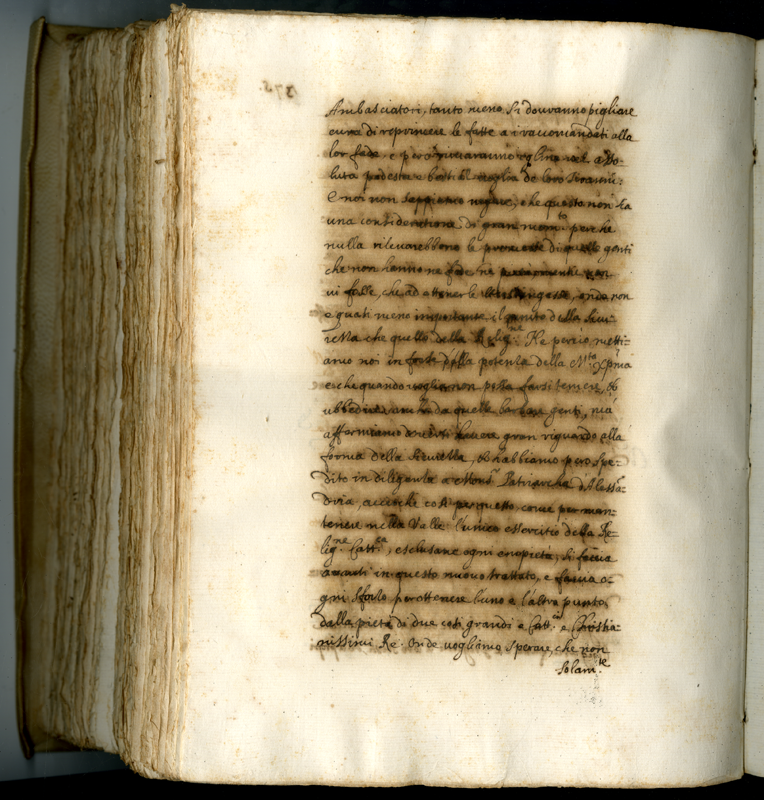 Ambasciatori, tanto meno si dovranno pigliare
cura di reprimere le fatte a i raccomandati alla
lor fede, e però
luta podestà e de loro Tiranni:
E noi non sappiamo negare, che questa non sia
una consideratione di gran mom.to perche
nulla rilevarebbono le promesse di quelle genti
che non hanno ne fede ne
che ad ottenerle onde non
e quasi meno importante il punto della sicu-
rezza che quello della Relig.ne Ne perciò metti-
amo noi in della potenza della M.tà Xp̃ma
che quando voglia non possa farsi temere, et
ubbedire da quelle barbare genti, mà
affermiamo doversi havere gran riguardo alla
forma della sicurezza, et habbiamo però spe-
dito in diligenza a Mons.r Patriarcha d'Alessã-
dria, accioche così per questo come per man-
tenere nella Valle l'unico essercitio della Re-
lig.ne Catt.ca, esclusane ogni empietà, si faccia
avanti in questo nuovo trattato, e faccia o-
gni sforzo per ottenere l'uno e l'altro punto,
dalla pietà di due così grandi e Catt.co e Christia-
nissimi Re. Onde vogliamo sperare, che non
solam.te